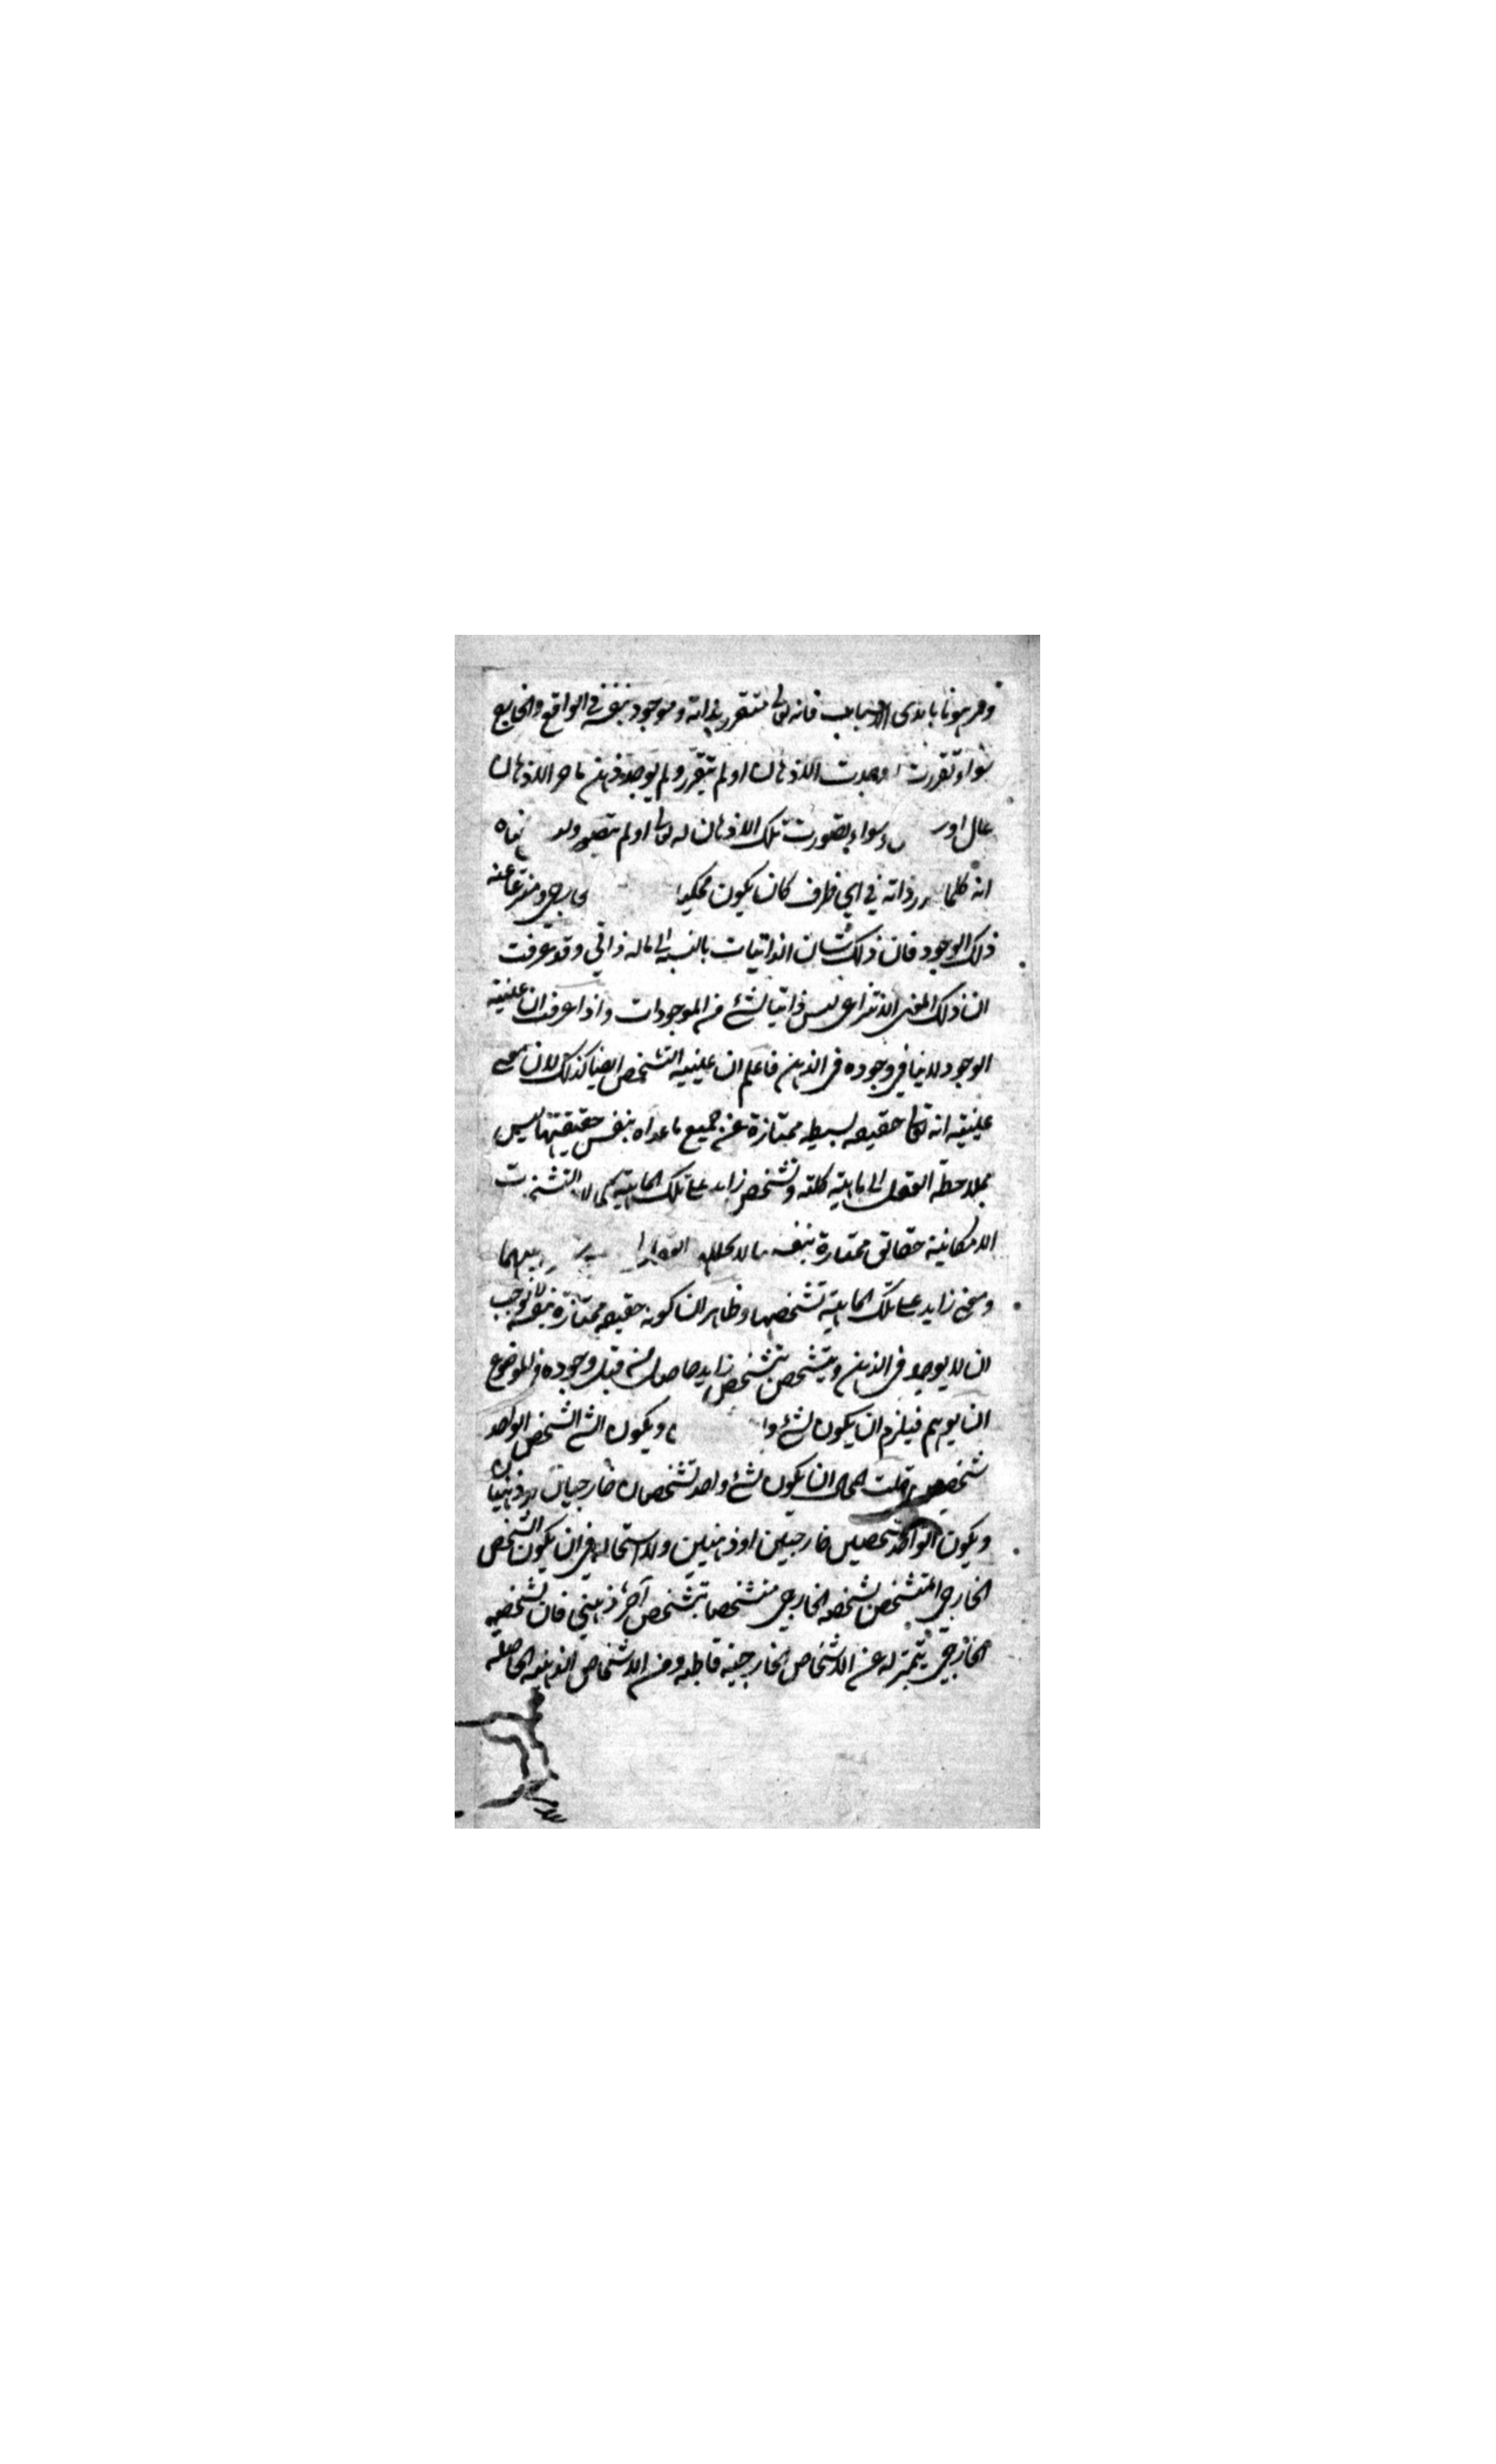 ومرهونا بايدى الاسباب فانه تعالى متقرر بذاته وموجود بنفسه في الواقع والخارج
سواء تقررت او وجدت الاذهان او لم يتقرر ولم يوجد ذهن ما من الاذهان
عال او وسواء تصورت تلك الاذهان له تعالى او لم يتصور
انه كلما ذاته في اي ظرف كان يكون محكيا خارجي ومنتزعا عنه
ذلك الوجود فان ذلك شان الذاتيات بالنسبه الى ماله ذاتي وقد عرفت
ان ذلك المعنى الانتزاعي ليس ذاتيا لشئ من الموجودات واذا عرفت ان عينيته
الوجود لا ينافي وجوده في الذهن فاعلم ان عينيه التشخص ايضا كذلك لان معنى
عينيته انه تعالى حقيقه بسيطه ممتازة عن جميع ما عداه بنفس حقيقتها ليس
بملاحظه العقول الى ماهية كلية وتشخص زايد على تلك الماهية كما لا
الامكانية حقائق ممتازة بنفسها
ومعنى زايد على تلك الماهية تشخصها وظاهر ان كونه حقيقه ممتازة بنفسه لا يوجب
ان لا يوجد في الذهن ويتشخص بتشخص زايد حاصل من قبل وجوده في الموضوع
ان يوهم فيلزم ان يكون لشئ ويكون الشئ الشخص الواحد
شخصين قلت المحال ان يكون لشئ واحد تشخصان خارجيان او ذهنيان
ويكون الواحد شخصين خارجيين او ذهنيين ولا استحاله في ان يكون الشخص
الخارجي المتشخص بتشخصه الخارجي متشخصا بتشخص آخر ذهني فان تشخصه
الخارجي يتميز له عن الاشخاص الخارجية قاطبه ومن الاشخاص الذهنيه الحاصله